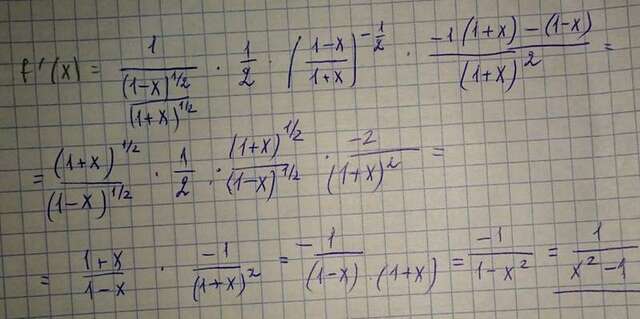 f'(x) = \frac{1}{\frac{(1-x)^{1/2}}{(1+x)^{1/2}}} · \frac{1}{2} · \left(\frac{1-x}{1+x}\right)^{-\frac{1}{2}} · \frac{-1(1+x)-(1-x)}{(1+x)^2} =
= \frac{(1+x)^{1/2}}{(1-x)^{1/2}} · \frac{1}{2} · \frac{(1+x)^{1/2}}{(1-x)^{1/2}} · \frac{-2}{(1+x)^2} =
= \frac{1+x}{1-x} · \frac{-1}{(1+x)^2} = \frac{-1}{(1-x)·(1+x)} = \frac{-1}{1-x^2} = \frac{1}{x^2-1}